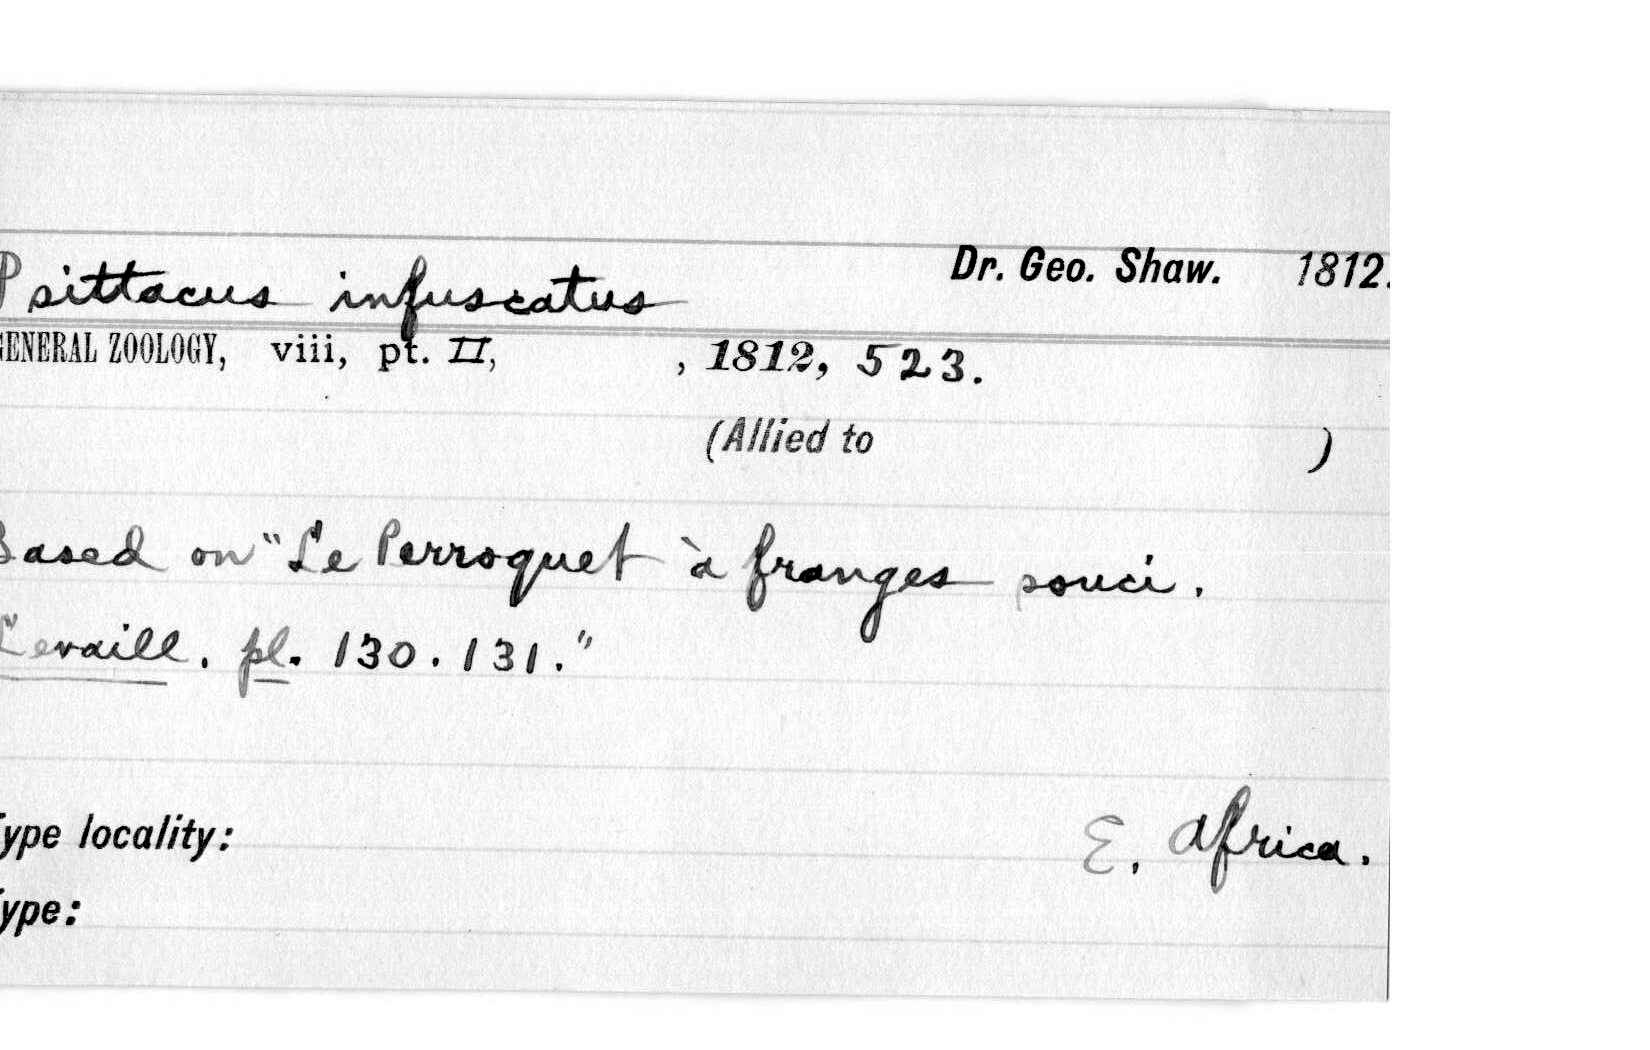 Psittacus infuscatus Dr. Geo. Shaw. 1812.
GENERAL ZOOLOGY, viii, pt. II, , 1812, 523.
(Allied to )
Based on "Le Perroquet à franges souci.
Levaill. pl. 130. 131."
Type locality: E. Africa.
Type: